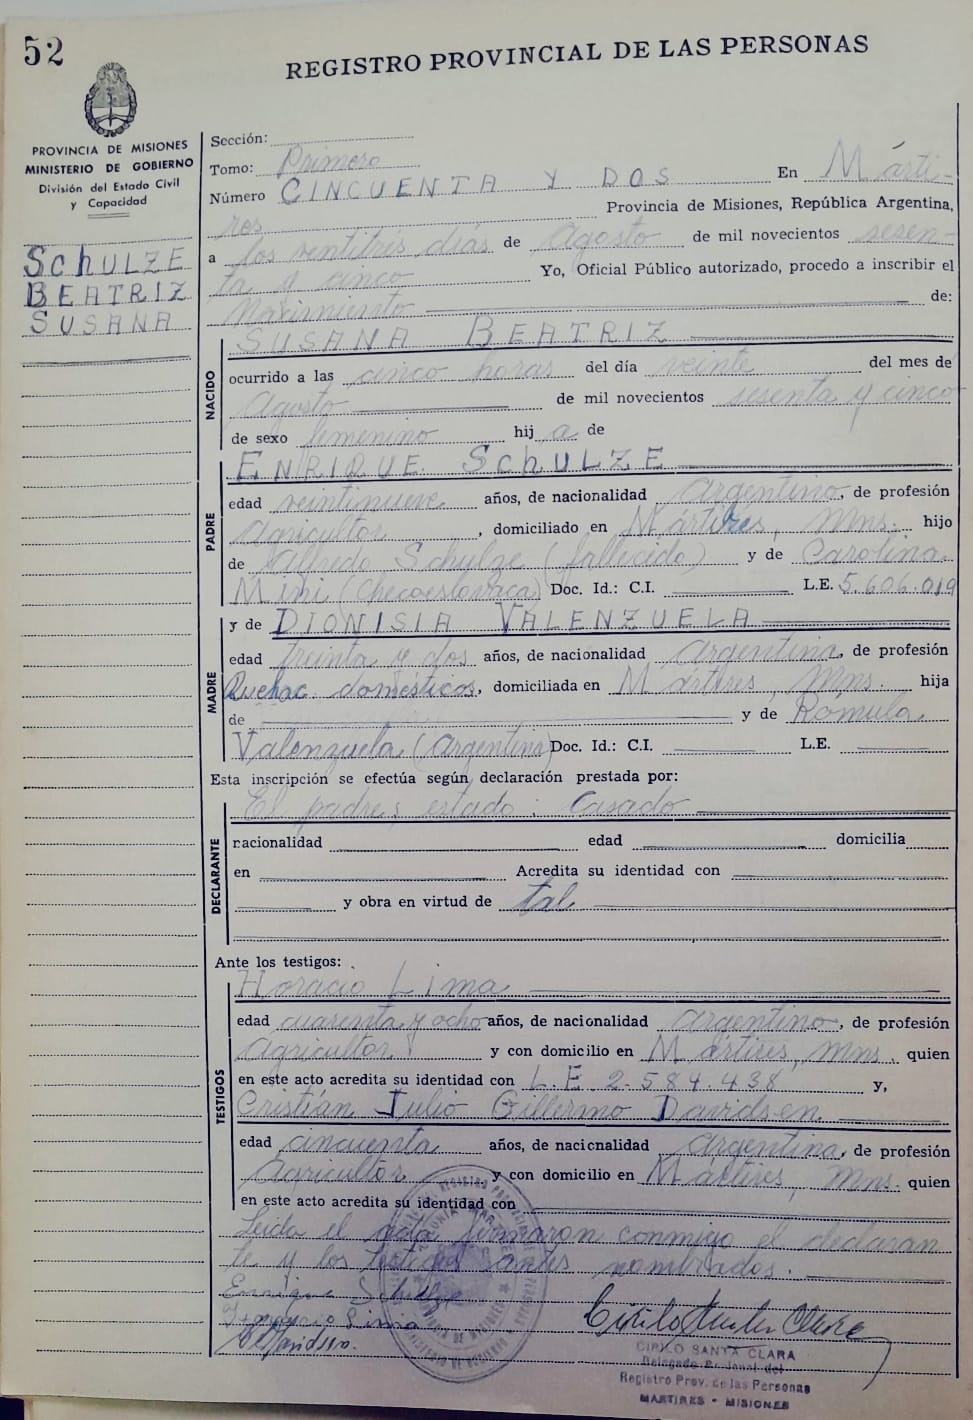 52
REGISTRO PROVINCIAL DE LAS PERSONAS
PROVINCIA DE MISIONES
MINISTERIO DE GOBIERNO
División del Estado Civil
y Capacidad
SchULZE
BEATRIZ
SUSANA
Sección:
Tomo: Primero
Número CINCUENTA Y DOS En Márti-
res Provincia de Misiones, República Argentina,
a los ventitrés días de Agosto de mil novecientos sesen-
ta y cinco Yo, Oficial Público autorizado, procedo a inscribir el
Nacimiento de:
NACIDO
SUSANA BEATRIZ
ocurrido a las cinco horas del día veinte del mes de
Agosto de mil novecientos sesenta y cinco
de sexo femenino hij a de
PADRE
ENRIQUE SchULZE
edad veintinueve años, de nacionalidad Argentino, de profesión
Agricultor, domiciliado en Mártires, Mns. hijo
de Alfredo Schulze (fallecido) y de Carolina
(Checoeslovaca) Doc. Id.: C.I. L.E. 5.606.019
MADRE
y de DIONISIA VALENZUELA
edad treinta y dos años, de nacionalidad Argentina, de profesión
Quehac. domésticos, domiciliada en Mártires, Mns. hija
de y de Rómula
Valenzuela (Argentina) Doc. Id.: C.I. L.E.
Esta inscripción se efectúa según declaración prestada por:
DECLARANTE
El padre; estado: Casado
nacionalidad edad domicilia
en Acredita su identidad con
y obra en virtud de tal
Ante los testigos:
TESTIGOS
Horacio Lima
edad cuarenta y ocho años, de nacionalidad Argentino, de profesión
Agricultor y con domicilio en Mártires, Mns. quien
en este acto acredita su identidad con L.E 2.584.438 y,
Cristián Julio Gillermo Davidsen
edad cincuenta años, de nacionalidad Argentina, de profesión
Agricultor y con domicilio en Mártires, Mns. quien
en este acto acredita su identidad con
Leida el acta firmaron conmigo el declaran
te y los testigos antes nombrados.
Enrique Schulze
Lima
CIRILO SANTA CLARA
Delegado Regional del
Registro Prov. de las Personas
MARTIRES - MISIONES